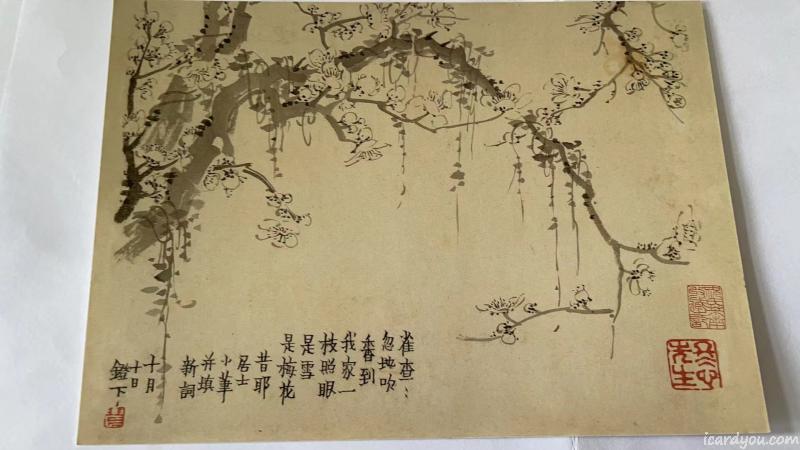 雀查〻
忽地吹
香到
我家一
枝照眼
是雪
是梅花
昔耶
居士
小筆
并填
新詞
十月
十日
鐙下
冬心
先生
icardyou.com